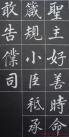 聖主好善時命
箴規小臣祗承
敢告僕司